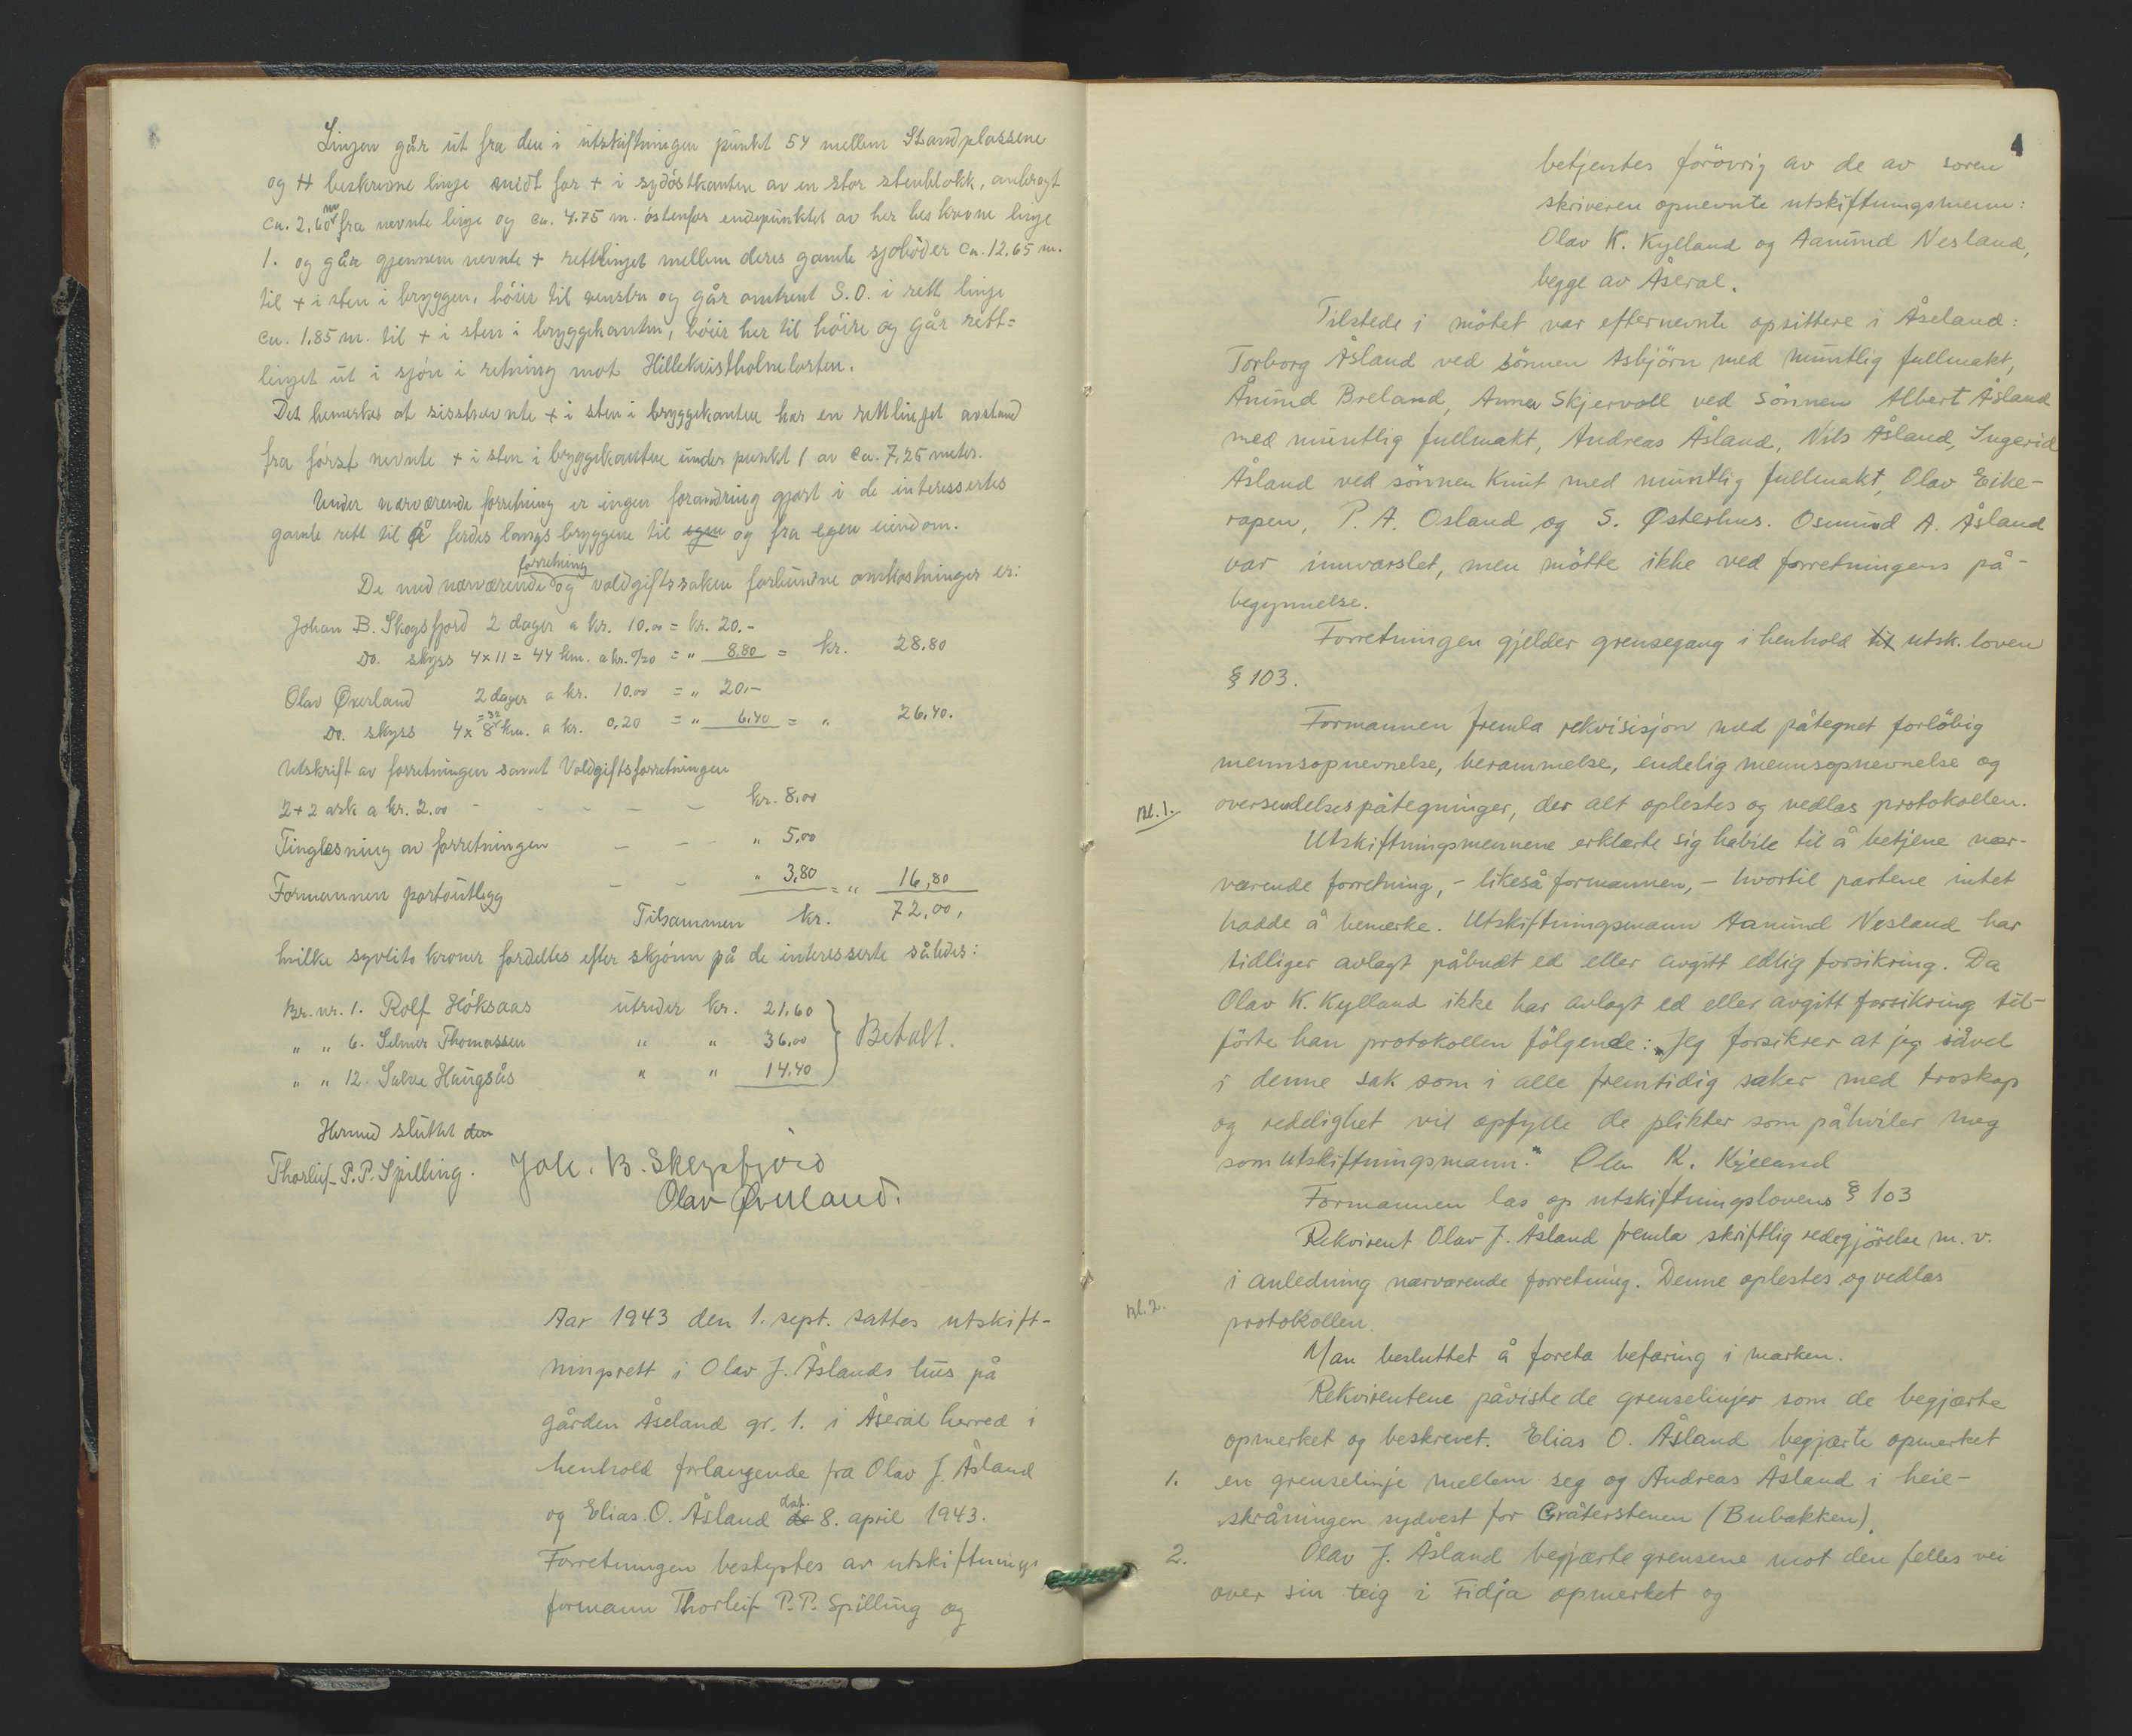 Linjen går ut fra den i utskiftningen punkt 54 mellem Strandplassene
og H beskrevne linje midt for + i sydöstkanten av en stor stenblokk, anbragt
ca. 2,60 m fra nevnte linje og ca. 4.75 m. östenfor endepunktet av her beskrevne linje
1. og går gjennem nevnte + rettlinjet mellem deres gamle sjøboder ca. 12,65 m.
til + i sten i bryggen, böier til venstre og går omtrent S.O. i rett linje
ca. 1,85 m. til + i sten i bryggekanten, böier her til höire og går rett=
linjet ut i sjön i retning mot Hillekvistholmelorten.
Det bemerkes at sisstnevnte + i sten i bryggekanten har en rettlinjet avstand
fra först nevnte + i sten i bryggekanten under punkt 1 av ca. 7,25 meter.
Under nærværende forretning er ingen forandring gjort i de interessertes
gamle rett til å ferdes langs bryggene til egen og fra egen eiendom.
forretning
De med nærværende og voldgiftssaken forbundne omkostninger er:
Johan B. Skogsfjord 2 dager a kr. 10.00 = kr. 20.-
Do. skyss 4x11 = 44 km. a kr. 0/20 = " 8.80 = kr. 28.80
Olav Øverland 2 dager a kr. 10.00 = " 20.-
Do. skyss 4 x 8 =32 km. a kr. 0,20 = " 6,40 = " 26,40.
Utskrift av forretningen samt Voldgiftsforretningen
2+2 ark a kr. 2.00 - - - - - kr. 8,00
Tinglesning av forretningen - - - " 5,00
Formannen portoutlegg - - " 3,80 = " 16,80
Tilsammen kr. 72,00,
hvilke syvtito kroner fordeltes efter skjønn på de interesserte således:
Br. nr. 1. Rolf Höksaas utreder kr. 21,60
" " 6. Selmer Thomassen " " 36,00 Betalt.
" " 12. Salve Haugsås " " 14,40
Hermed sluttet den
Thorleif P.P. Spilling. Joh. B. Skogsfjord
Olav Øverland.
Aar 1943 den 1. sept. sattes utskift-
ningsrett i Olav J. Åslands hus på
gården Åseland gr. 1. i Åseral herred i
henhold forlangende fra Olav J. Åsland
og Elias O. Åsland de dat. 8. april 1943.
Forretningen bestyrtes av utskiftnings
formann Thorleif P.P. Spilling og
4
betjentes forövrig av de av soren
skriveren opnevnte utskiftningsmenn:
Olav K. Kylland og Aanund Nesland,
begge av Åseral.
Tilstede i mötet var efternevnte opsittere i Åseland:
Torborg Åsland ved sönnen Asbjörn med muntlig fullmakt,
Ånund Breland, Anna Skjervoll ved sönnen Albert Åsland
med muntlig fullmakt, Andreas Åsland, Nils Åsland, Ingerid
Åsland ved sönnen Knut med muntlig fullmakt, Olav Eike-
rapen, P. A. Osland og S. Østerhus. Osmund A. Åsland
var innvarslet, men mötte ikke ved forretningens på-
begynnelse.
Forretningen gjelder grensegang i henhold til utsk. loven
§ 103.
Formannen fremla rekvisisjon med påtegnet forlöbig
mennsopnevnelse, berammelse, endelig mennsopnevnelse og
Bl. 1. oversendelsespåtegninger, der alt oplestes og vedlas protokollen.
Utskiftningsmennene erklærte sig habile til å betjene nær-
værende forretning, - likeså formannen, - hvortil partene intet
hadde å bemerke. Utskiftningsmann Aanund Nesland har
tidliger avlagt påbudt ed eller avgitt edlig forsikring. Da
Olav K. Kylland ikke har avlagt ed eller avgitt forsikring til-
förte han protokollen fölgende: "Jeg forsikrer at jeg såvel
i denne sak som i alle fremtidig saker med troskap
og redelighet vil opfylle de plikter som påhviler meg
som utskiftningsmann." Olav K. Kylland
Formannen las op utskiftningslovens § 103
Rekvirent Olav J. Åsland fremla skriftlig redegjörelse m. v.
i anledning nærværende forretning. Denne oplestes og vedlas
Bl. 2. protokollen.
Man besluttet å foreta befaring i marken.
Rekvirentene påviste de grenselinjer som de begjærte
opmerket og beskrevet. Elias O. Åsland begjærte opmerket
1. en grenselinje mellem seg og Andreas Åsland i heie-
skråningen sydvest for Gråterstenen (Bubakken).
2. Olav J. Åsland begjærte grensene mot den felles vei
over sin teig i Fidja opmerket og